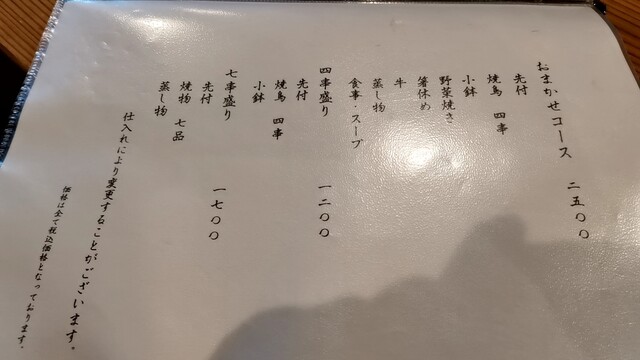 おまかせコース 二五〇〇
先付
焼鳥 四串
小鉢
野菜焼き
箸休め
牛
蒸し物
食事・スープ
四串盛り 一二〇〇
先付
焼鳥 四串
小鉢
七串盛り 一七〇〇
先付
焼物 七品
蒸し物
仕入れにより変更することがございます。
価格は全て税込価格となっております。